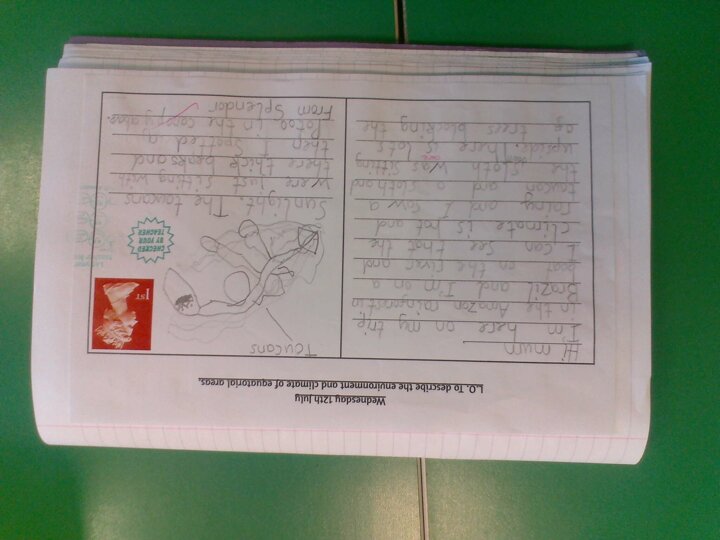 Wednesday 12th July
L.O. To describe the environment and climate of equatorial areas.
Hi mum
I'm here on my trip
in the Amazon rainforest in
Brazil and I'm on a
boat on the river and
I can see that the
climate is hot and
rainy and I saw a
toucan and a sloth and
the sloth was sitting
upside. There is lots
of trees blocking the
Toucans
1ST
CHECKED
BY YOUR
TEACHER
Sunlight. The toucans
were just sitting with
there thick beaks and
then I spotted a
Potoo in the
From Splendor